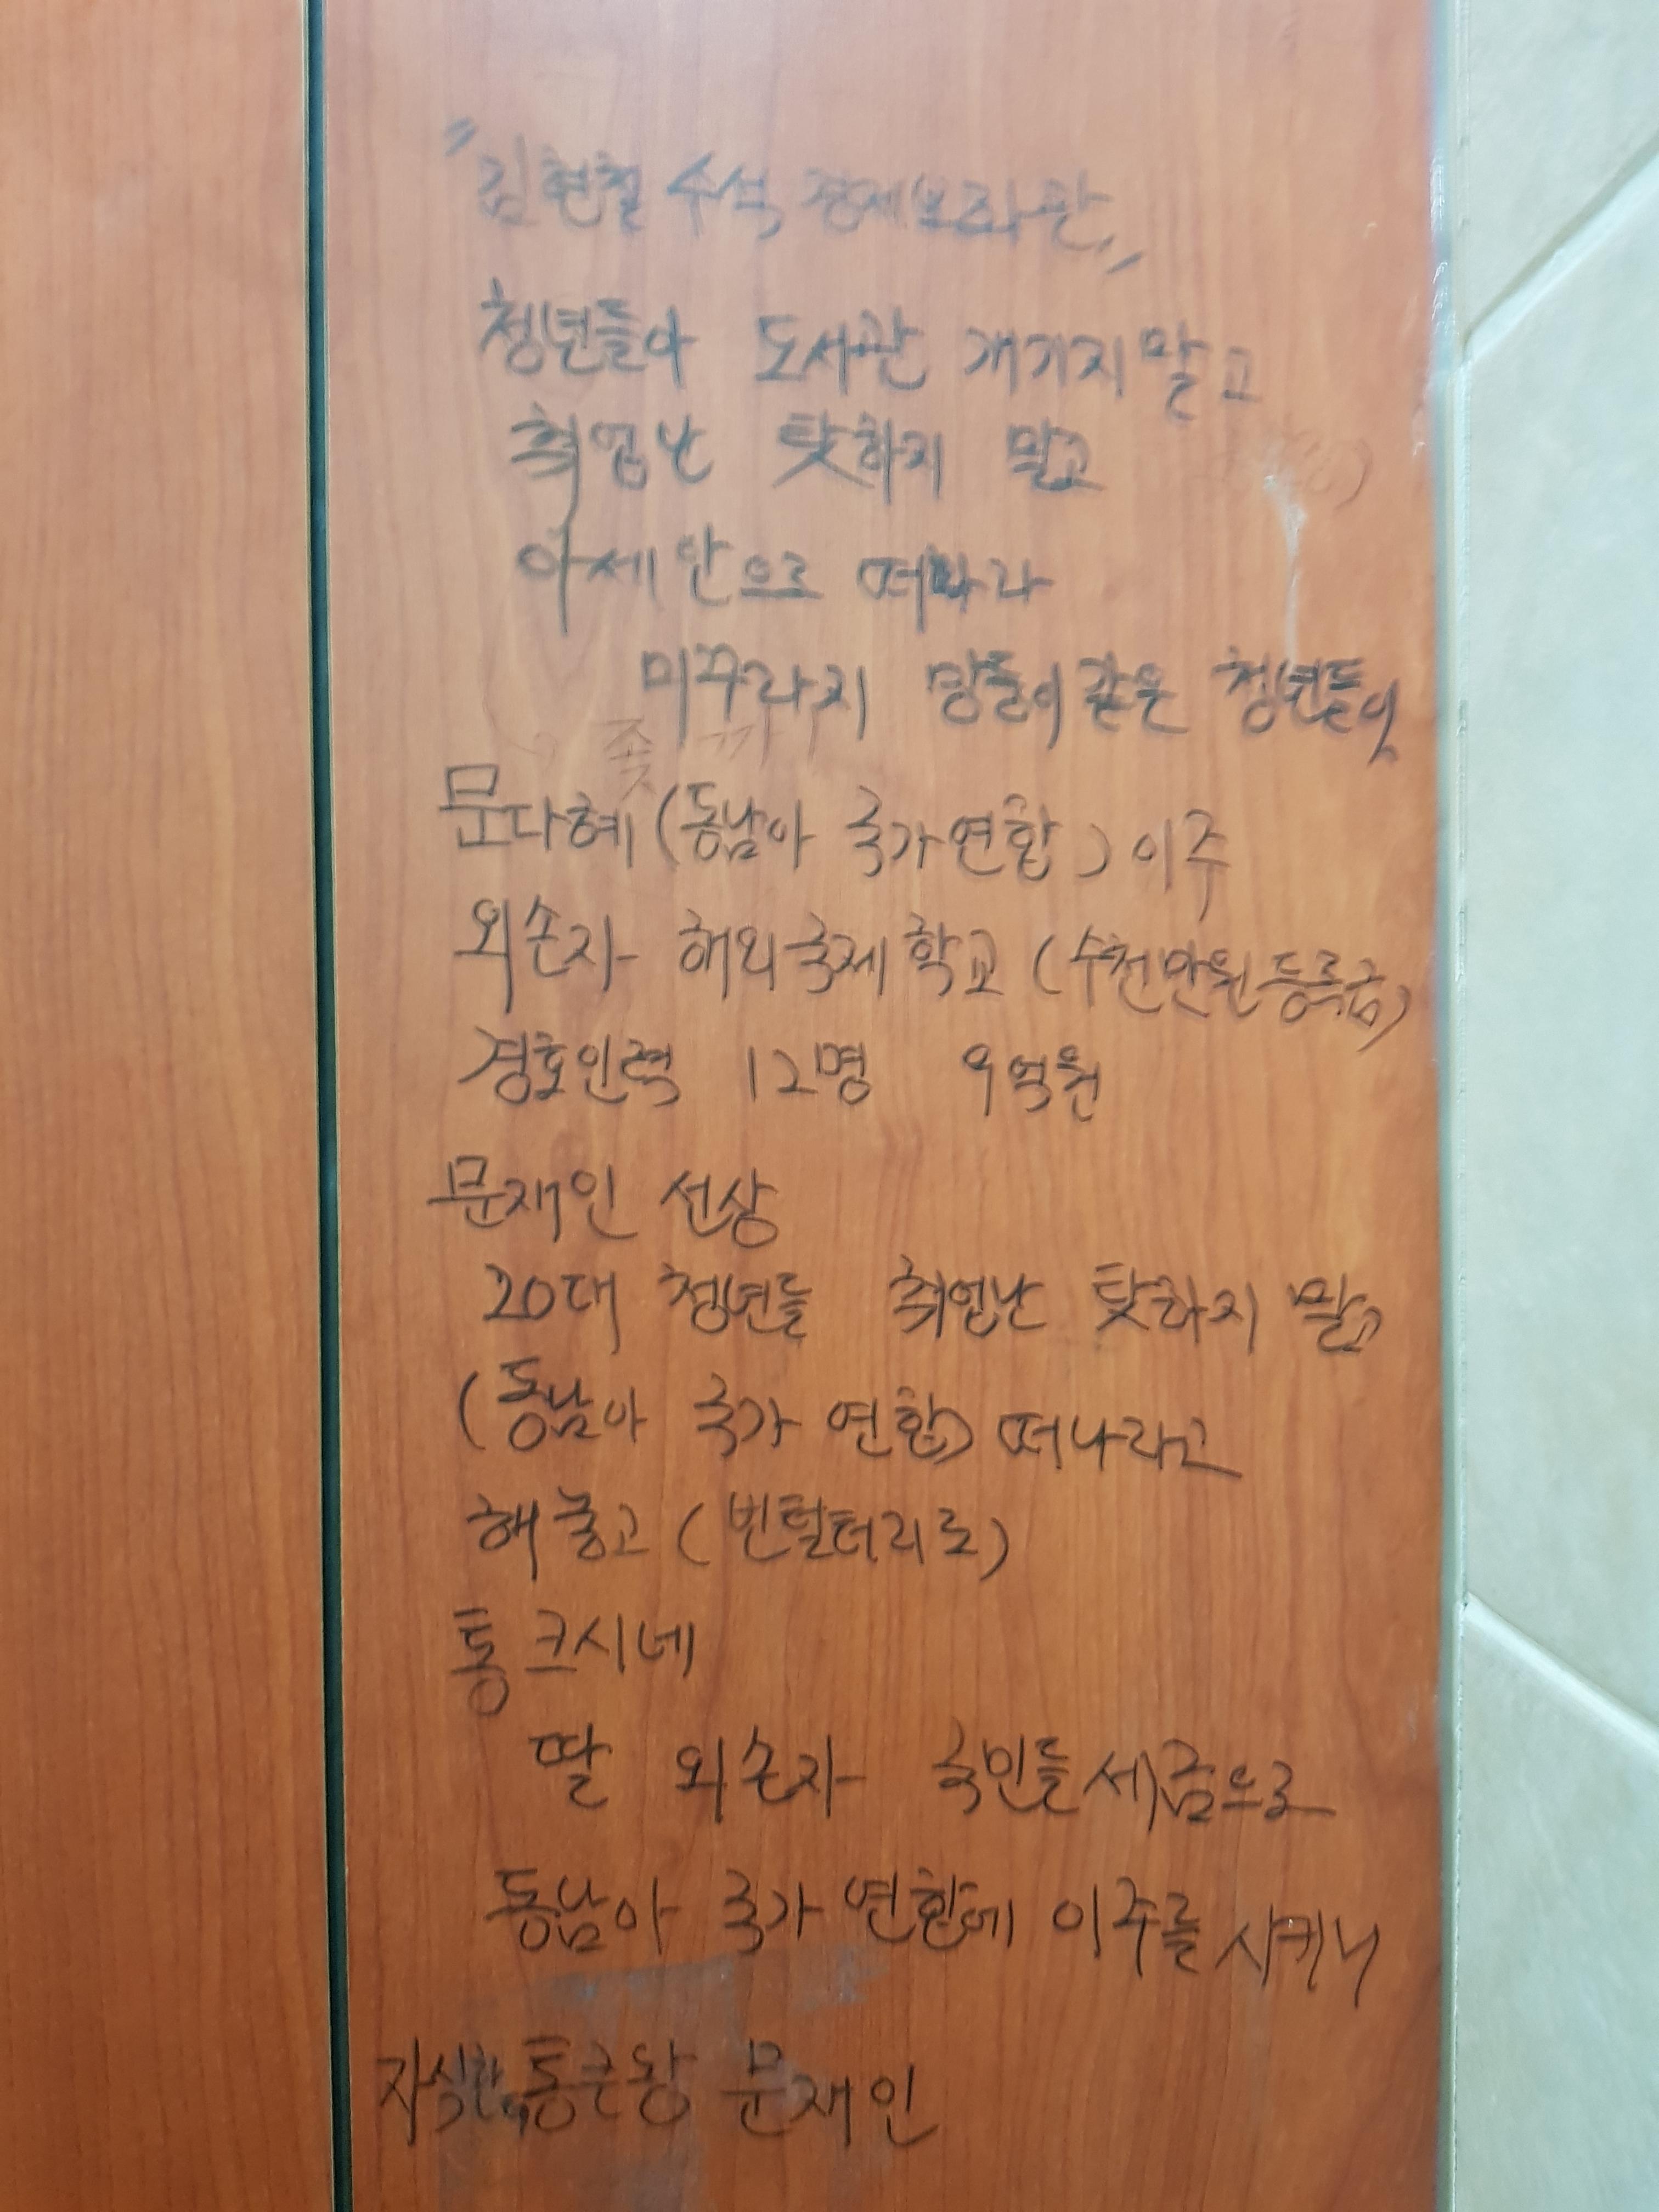 "김현철 수석 경제보좌관"
청년들아 도서관 개기지말고
취업난 탓하지 말고
아세안으로 떠나라
미꾸라지 망둥이같은 청년들아
좆까
문다혜 (동남아 국가연합) 이주
외손자 해외국제학교 (수천만원등록금)
경호인력 12명 9억원
문재인 선상
20대 청년들 취업난 탓하지 말고
(동남아 국가 연합) 떠나라고
해놓고 (빈털터리로)
통 크시네
딸 외손자 국민들세금으로
동남아 국가 연합에 이주를 시키니
자식한 통큰왕 문재인